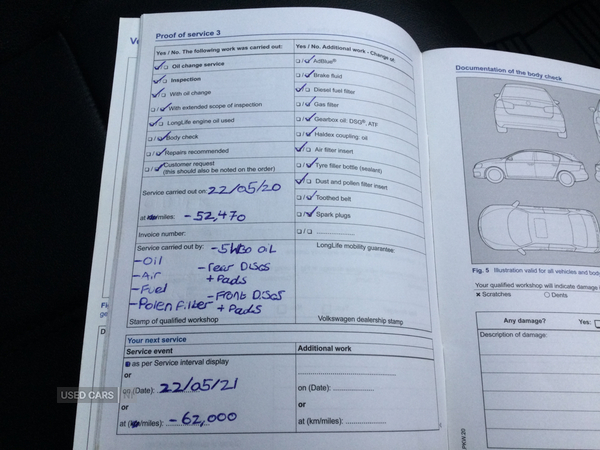 Proof of service 3
Yes / No. The following work was carried out:
☑ ❑ Oil change service
☑ ❑ Inspection
☑ ❑ With oil change
❑ / ☑ With extended scope of inspection
☑ ❑ LongLife engine oil used
❑ / ☑ Body check
❑ / ☑ Repairs recommended
❑ / ☑ Customer request
(this should also be noted on the order)
Service carried out on: 22/05/20
at km/miles: - 52,470
Invoice number:
Service carried out by: - 5W30 OIL
- OIL
- Air
- Fuel
- Polen Filter
- rear Discs
+ Pads
- Front Discs
+ Pads
Stamp of qualified workshop
Yes / No. Additional work - Change of:
❑ / ☑ AdBlue®
❑ / ☑ Brake fluid
☑ ❑ Diesel fuel filter
❑ / ☑ Gas filter
❑ / ☑ Gearbox oil: DSG®, ATF
❑ / ☑ Haldex coupling: oil
☑ ❑ Air filter insert
❑ / ☑ Tyre filler bottle (sealant)
☑ ❑ Dust and pollen filter insert
❑ / ☑ Toothed belt
❑ / ☑ Spark plugs
❑ / ❑ ..................
LongLife mobility guarantee:
Volkswagen dealership stamp
Your next service
Service event
as per Service interval display
or
on (Date): 22/05/21
or
at (km/miles): - 62,000
Additional work
on (Date): ..................
or
at (km/miles): ..................
Documentation of the body check
Fig. 5 Illustration valid for all vehicles and body
Your qualified workshop will indicate damage
✕ Scratches
○ Dents
Any damage?
Yes:
Description of damage:
PKW 20
USED CARS NI